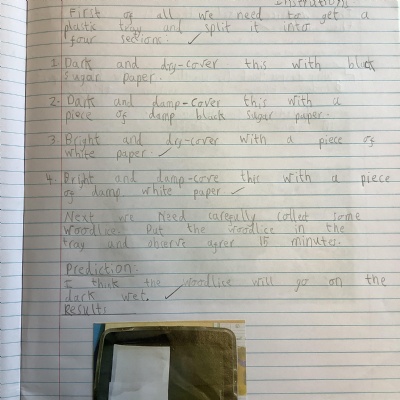 Instructions
First of all we need to get a
plastic tray and split it into
four sections.
1 Dark and dry-cover this with black
sugar paper.
2. Dark and damp-cover this with a
piece of damp black sugar paper.
3 Bright and dry-cover with a piece of
white paper.
4. Bright and damp-cove this with a piece
of damp white paper
Next we need carefully collect some
woodlice. Put the woodlice in the
tray and observe agrer 15 minutes.
Prediction:
I think the woodlice will go on the
dark wet.
Results